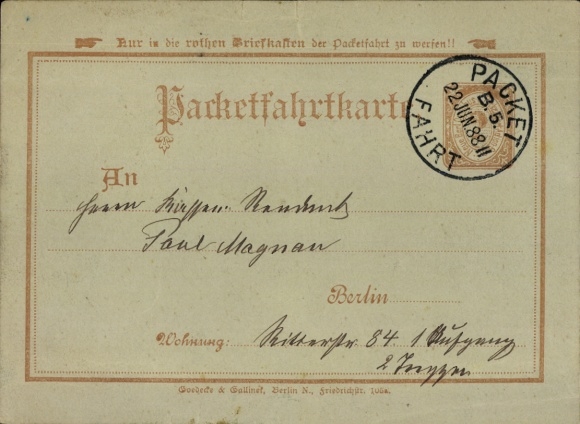 Nur in die rothen Briefkasten der Packetfahrt zu werfen!!
Packetfahrtkarte
PACKET
B. 5.
22 JUN. 88. 11
FAHRT
An
Herrn Kassen Rendant
Paul Magnan
Berlin
Wohnung: Ritterstr 84. 1 Aufgang
2 Treppen
Goedecke & Gallinek, Berlin N., Friedrichstr.